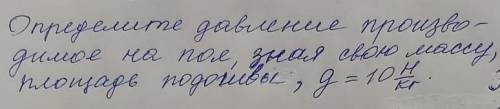 Определите давление произво-
димое на пол, зная свою массу,
площадь подошвы, g = 10 Н/кг.